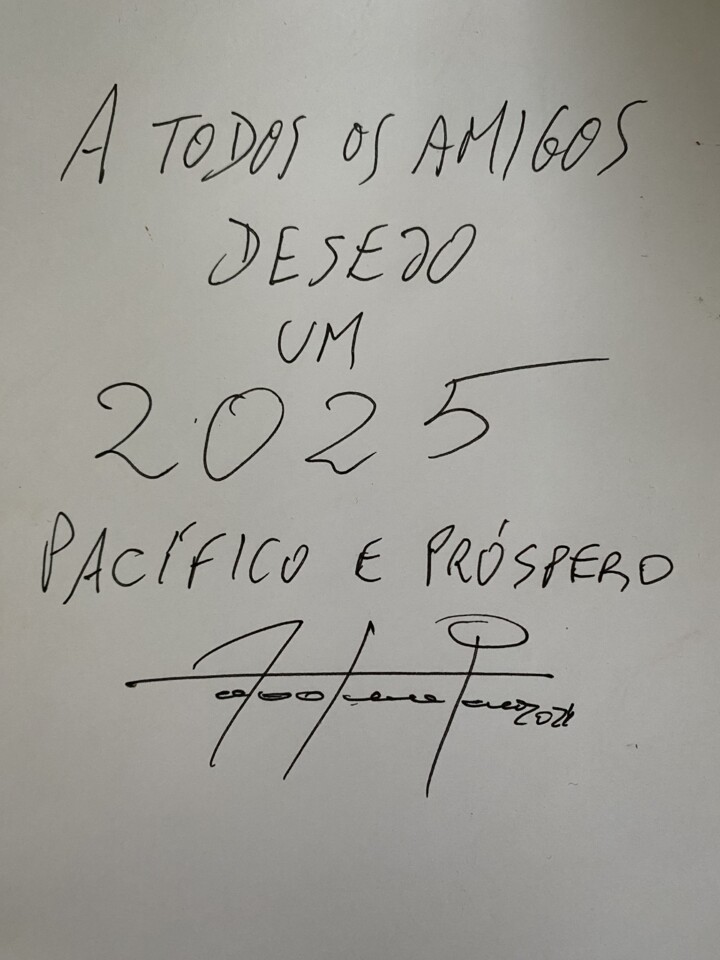 A TODOS OS AMIGOS
DESEJO
UM
2025
PACÍFICO E PRÓSPERO
2024